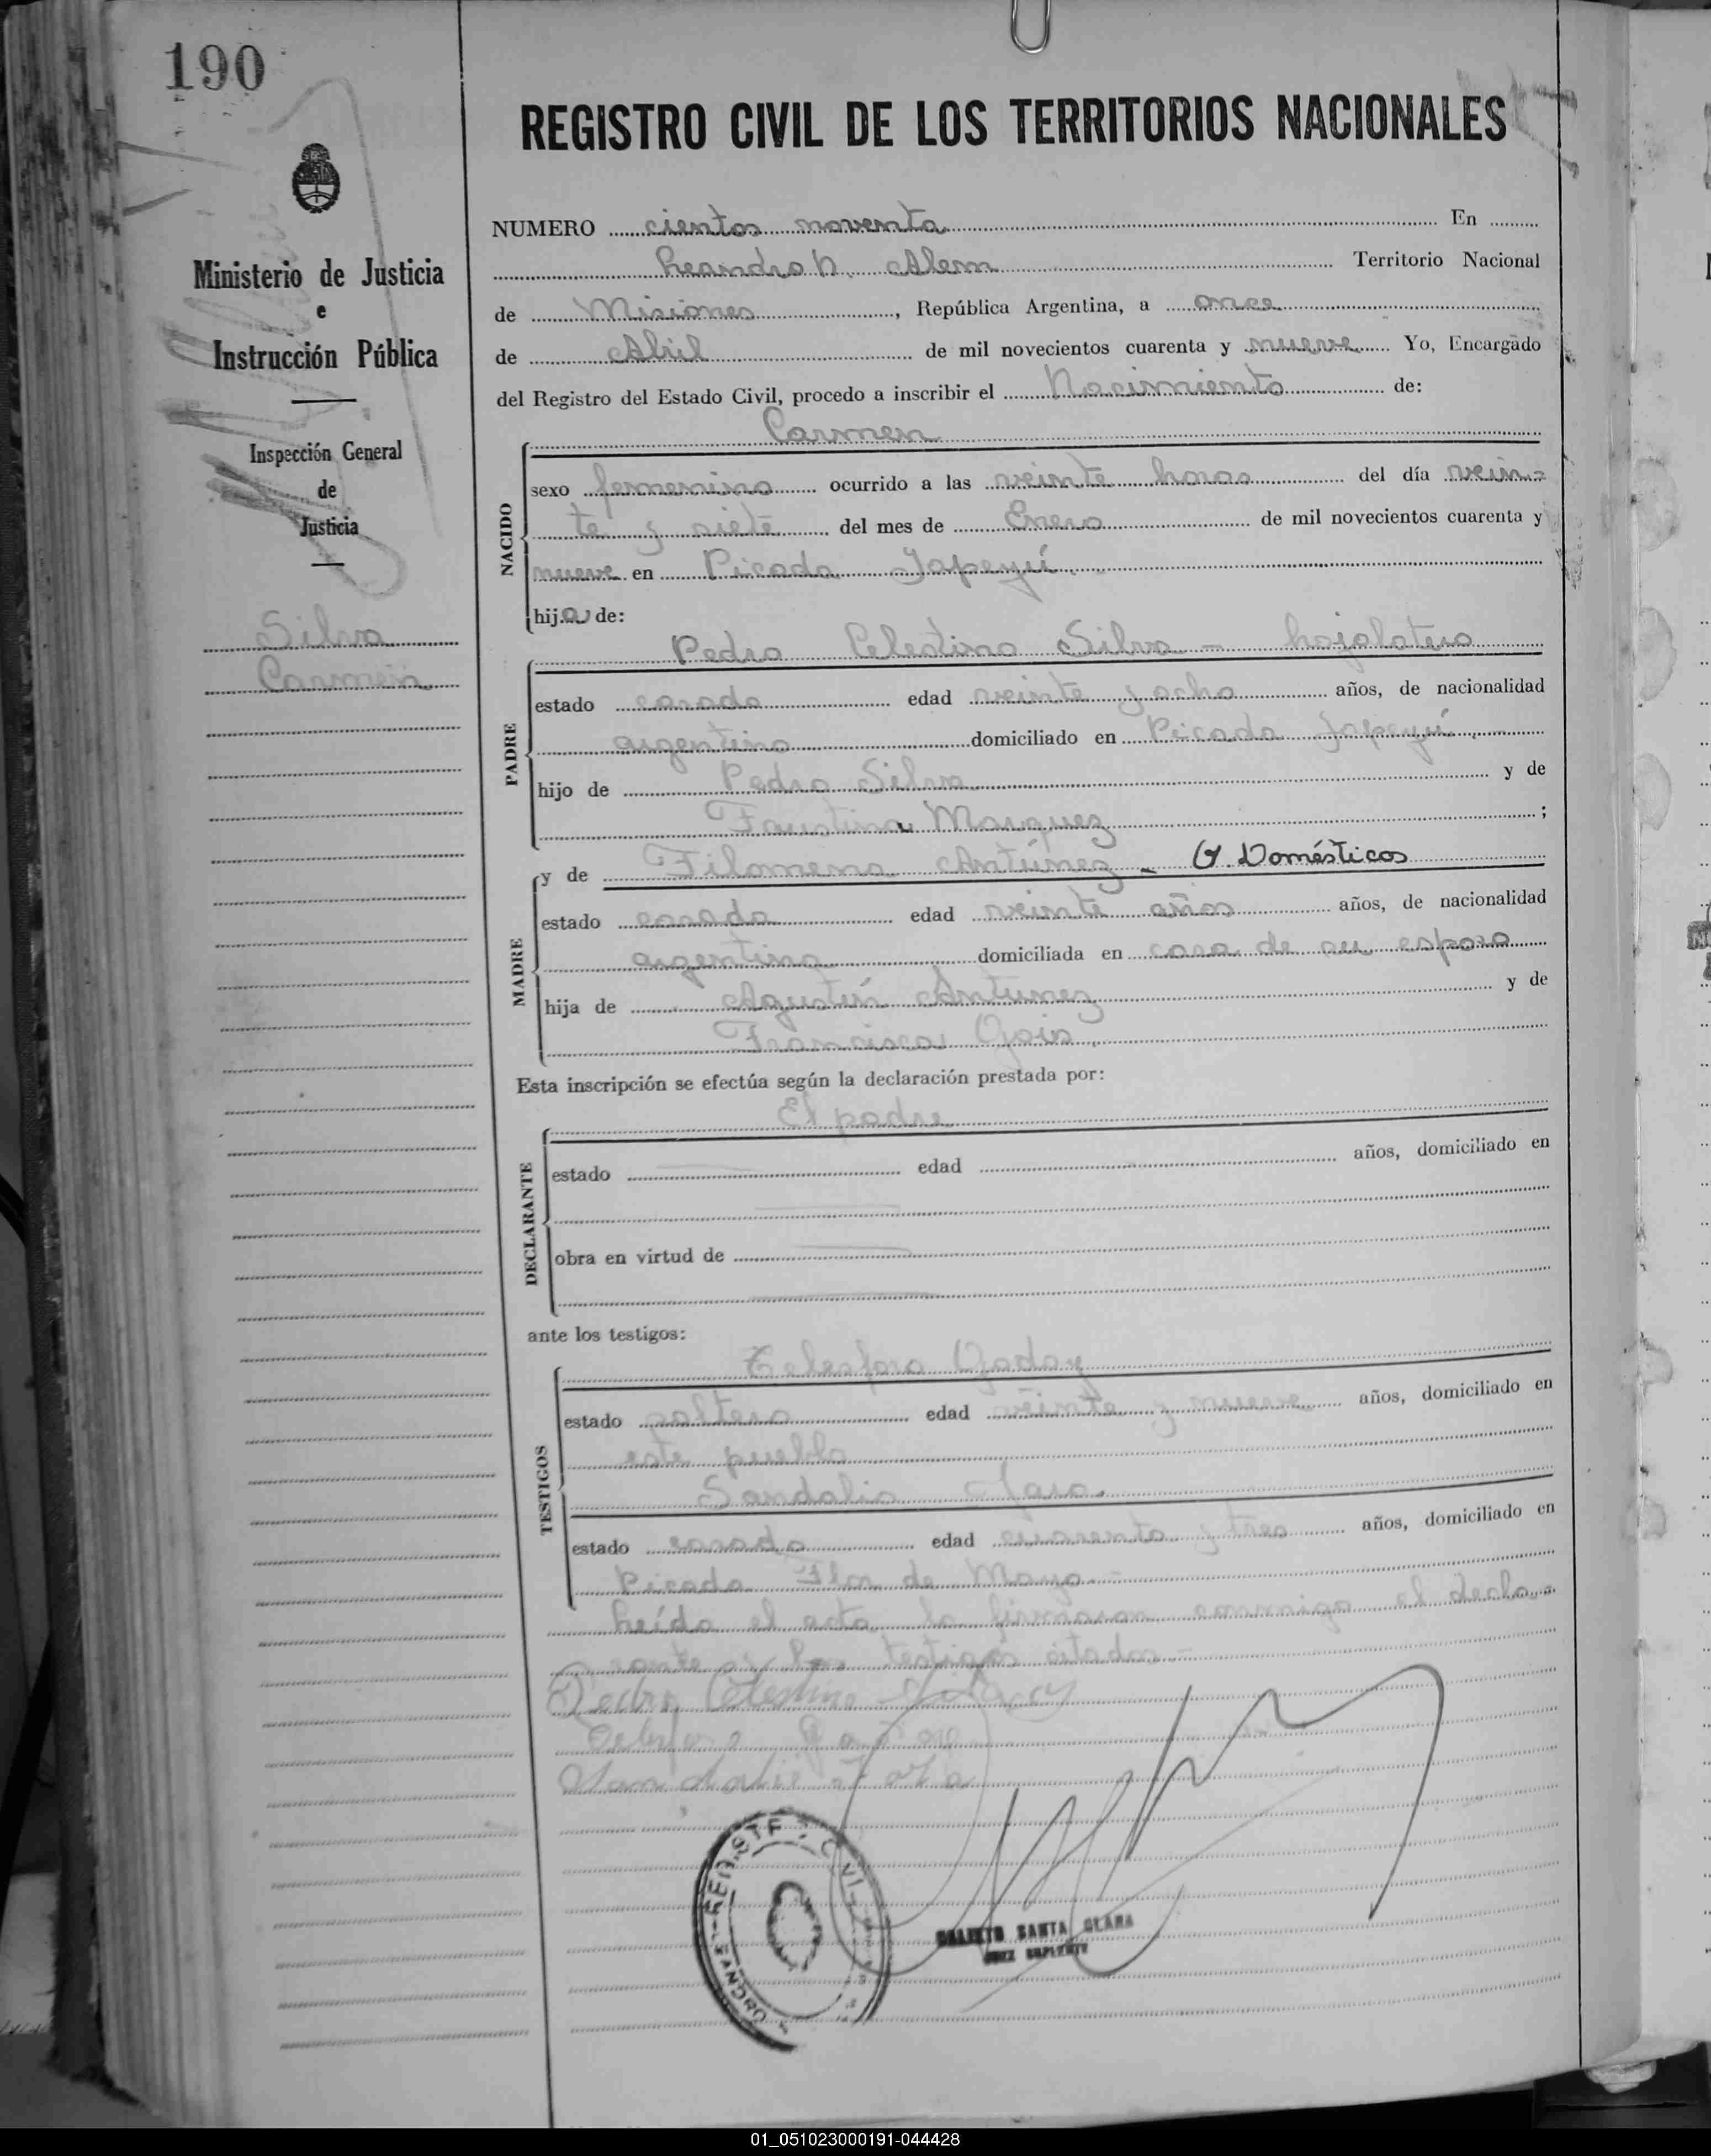 190
REGISTRO CIVIL DE LOS TERRITORIOS NACIONALES
Ministerio de Justicia
e
Instrucción Pública
Inspección General
de
Justicia
Silva
Carmen
NUMERO cientos noventa En
Leandro N. Alem Territorio Nacional
de Misiones, República Argentina, a once
de Abril de mil novecientos cuarenta y nueve Yo, Encargado
del Registro del Estado Civil, procedo a inscribir el Nacimiento de:
Carmen
NACIDO
sexo femenino ocurrido a las veinte horas del día vein-
te y siete del mes de Enero de mil novecientos cuarenta y
nueve en Picada Yapeyú.
hija de:
Pedro Celestino Silva - hojalatero
PADRE
estado casado edad veinte y ocho años, de nacionalidad
argentino domiciliado en Picada Yapeyú.
hijo de Pedro Silva y de
Faustina Marquez ;
y de Filomena Antúnez - Q. Domésticos
MADRE
estado casada edad veinte años años, de nacionalidad
argentina domiciliada en casa de su esposo
hija de Agustín Antunez y de
Francisca
Esta inscripción se efectúa según la declaración prestada por:
El padre
DECLARANTE
estado edad años, domiciliado en
obra en virtud de
ante los testigos:
Telesforo Godoy
TESTIGOS
estado soltero edad veinte y nueve años, domiciliado en
este pueblo
Sandalio Jara.
estado casado edad cuarenta y tres años, domiciliado en
Picada Flor de Mayo.-
Leída el acta la firmaron conmigo el decla-
rante y los testigos citados -
Pedro Celestino Silva
Sandalio Jara
REGISTRO CIVIL
LEANDRO
SANTA CLARA
JUEZ SUPLENTE
01_051023000191-044428